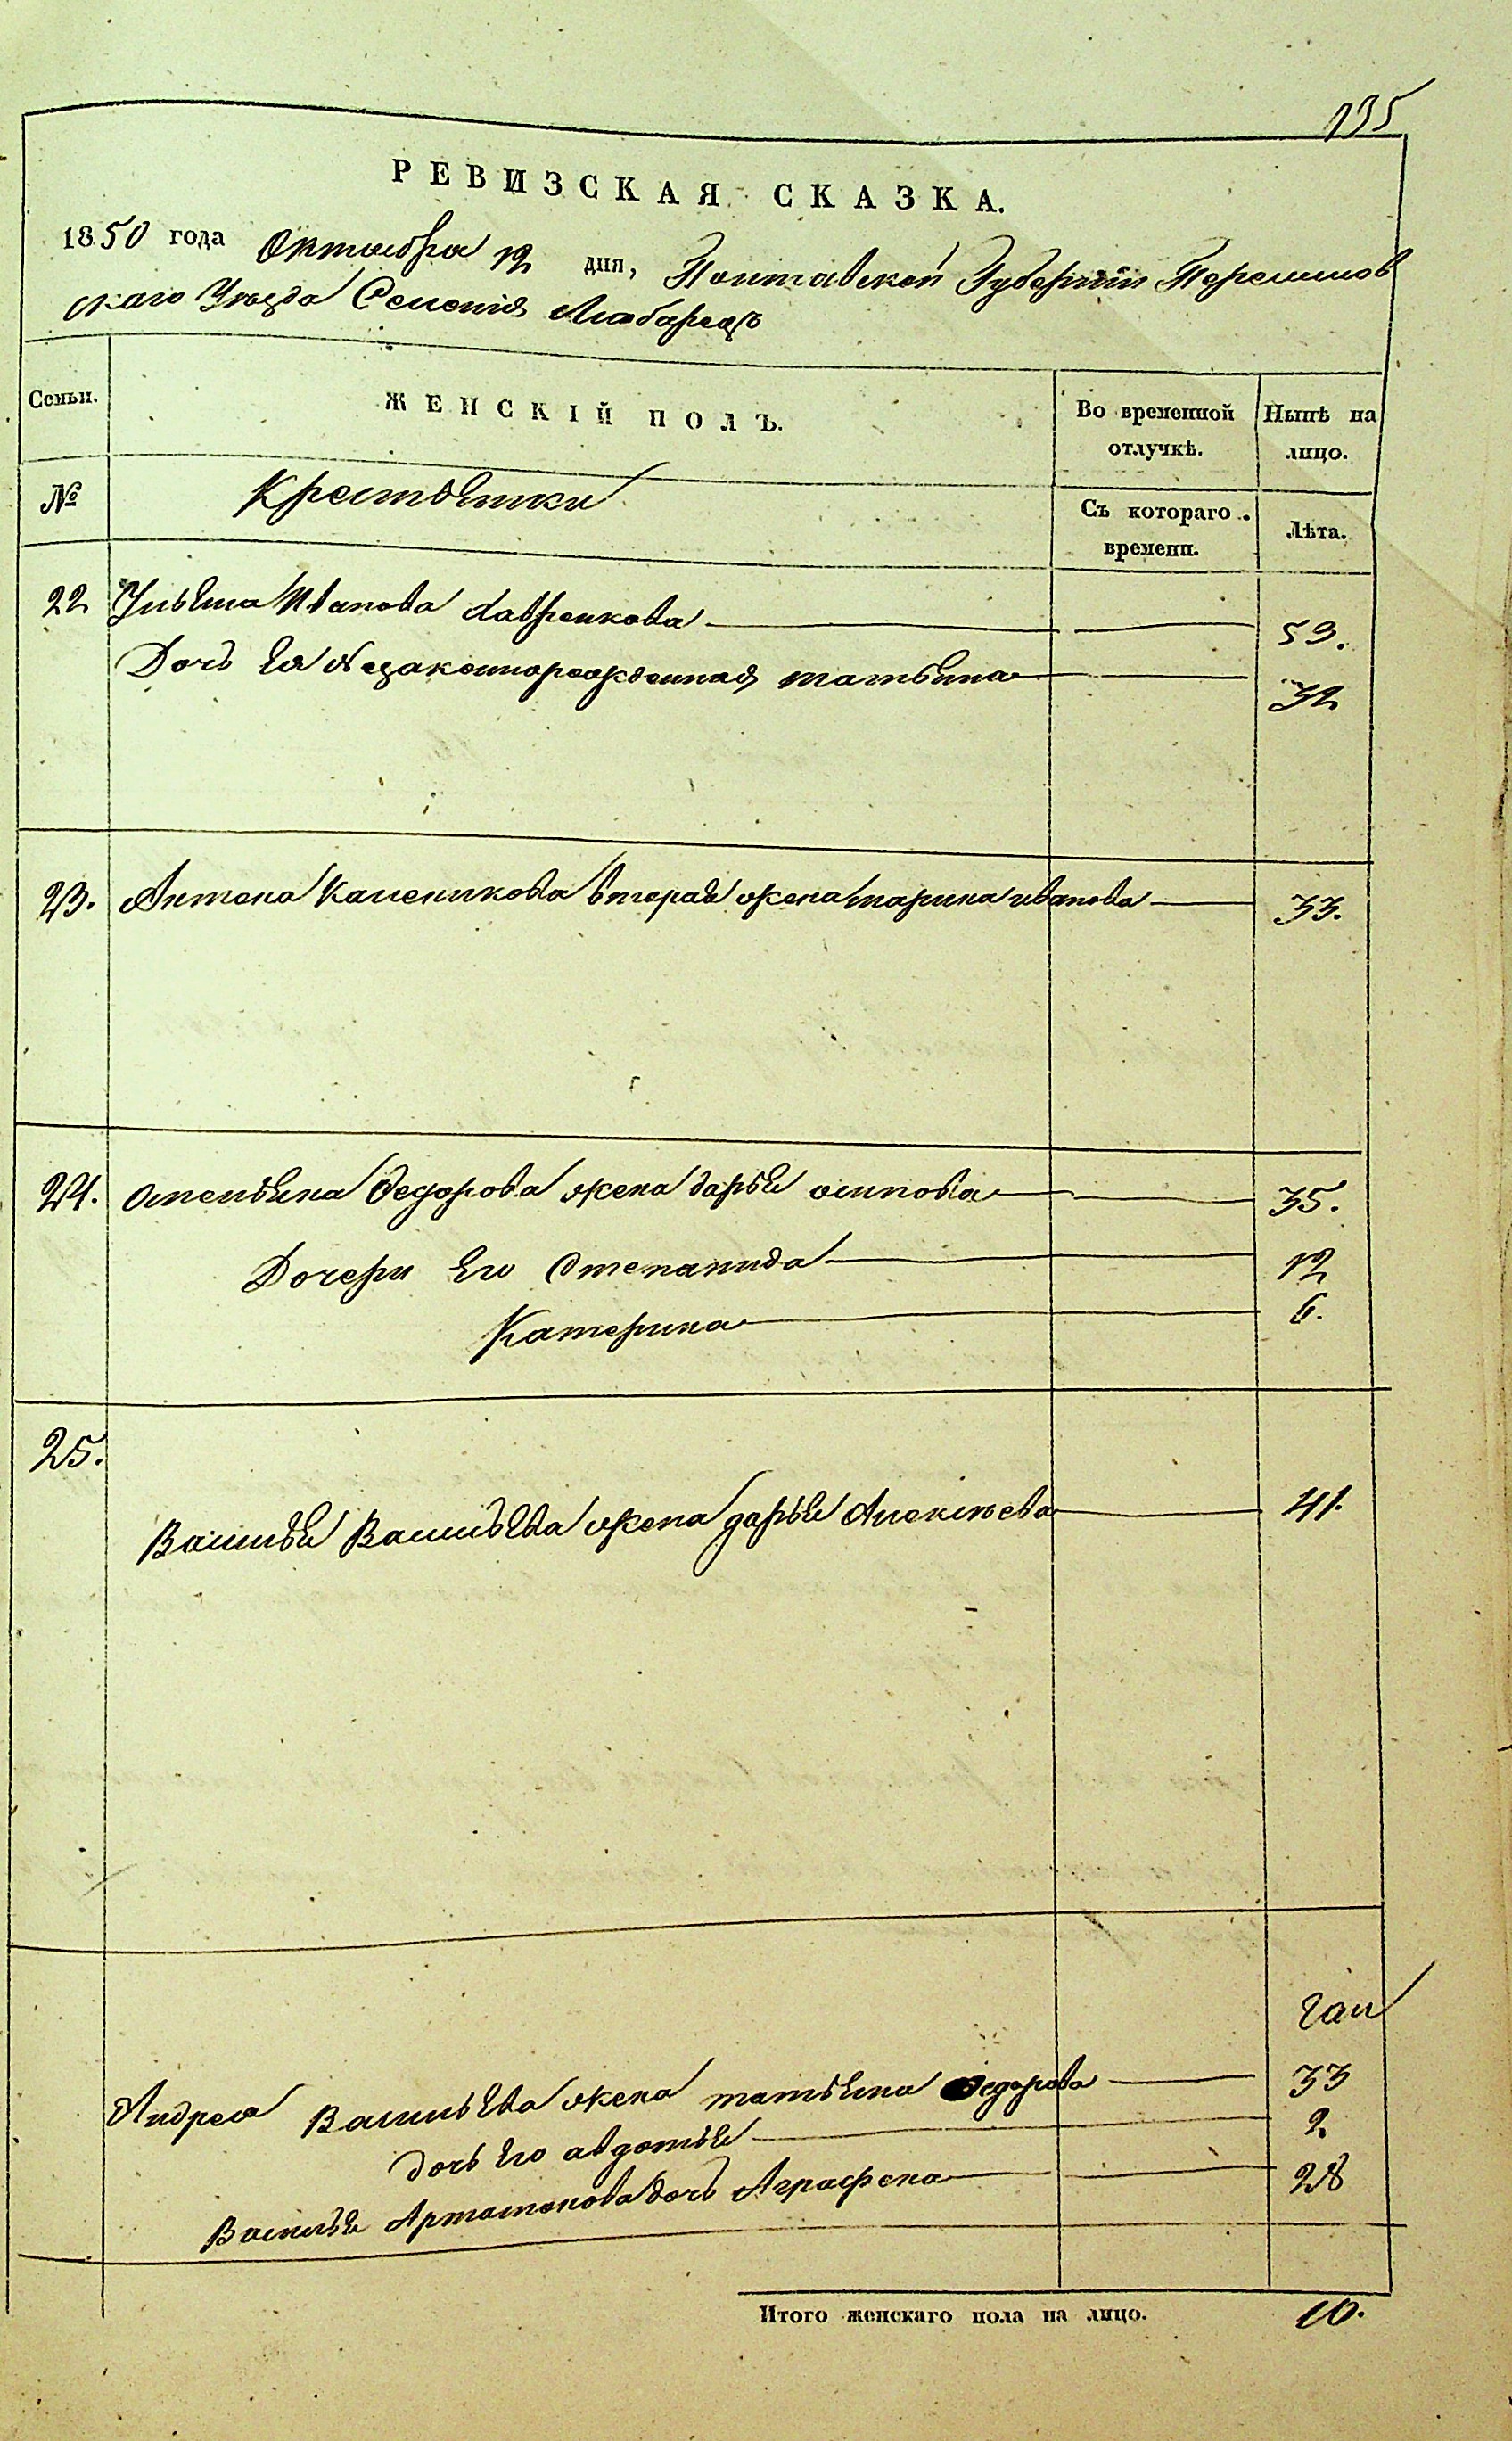 135
РЕВИЗСКАЯ СКАЗКА.
1850 года Октября 12 дня, Полтавской Губернїи Переяслов
скаго Уезда Селенія Любарецъ
Семьи. ЖЕНСКІЙ ПОЛЪ. Во временной отлучкѣ. Нынѣ на лицо.
№ Крестьянки Съ котораго времени. Лѣта.
22 Ульяна Иванова Лавренкова 59.
Дочь Ея Незаконнорожденная татьяна 32
23. Антона вторая жена марина иванова 33.
24. емельяна Федорова жена дарья осипова 35.
Дочери Его Степанида 12
Катерина 6.
25.
Василья Васильева жена дарья Алексѣева 41.
Андрея Васильева жена татьяна Федорова 33
дочь Его авдотья 2
Василья дочь Аграфена 28
Итого женскаго пола на лицо. 10.